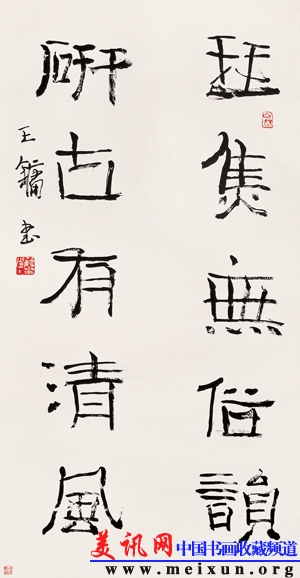 無俗韻
研古有清風
王鏞書
美讯网 中国书画收藏频道
www.meixun.org